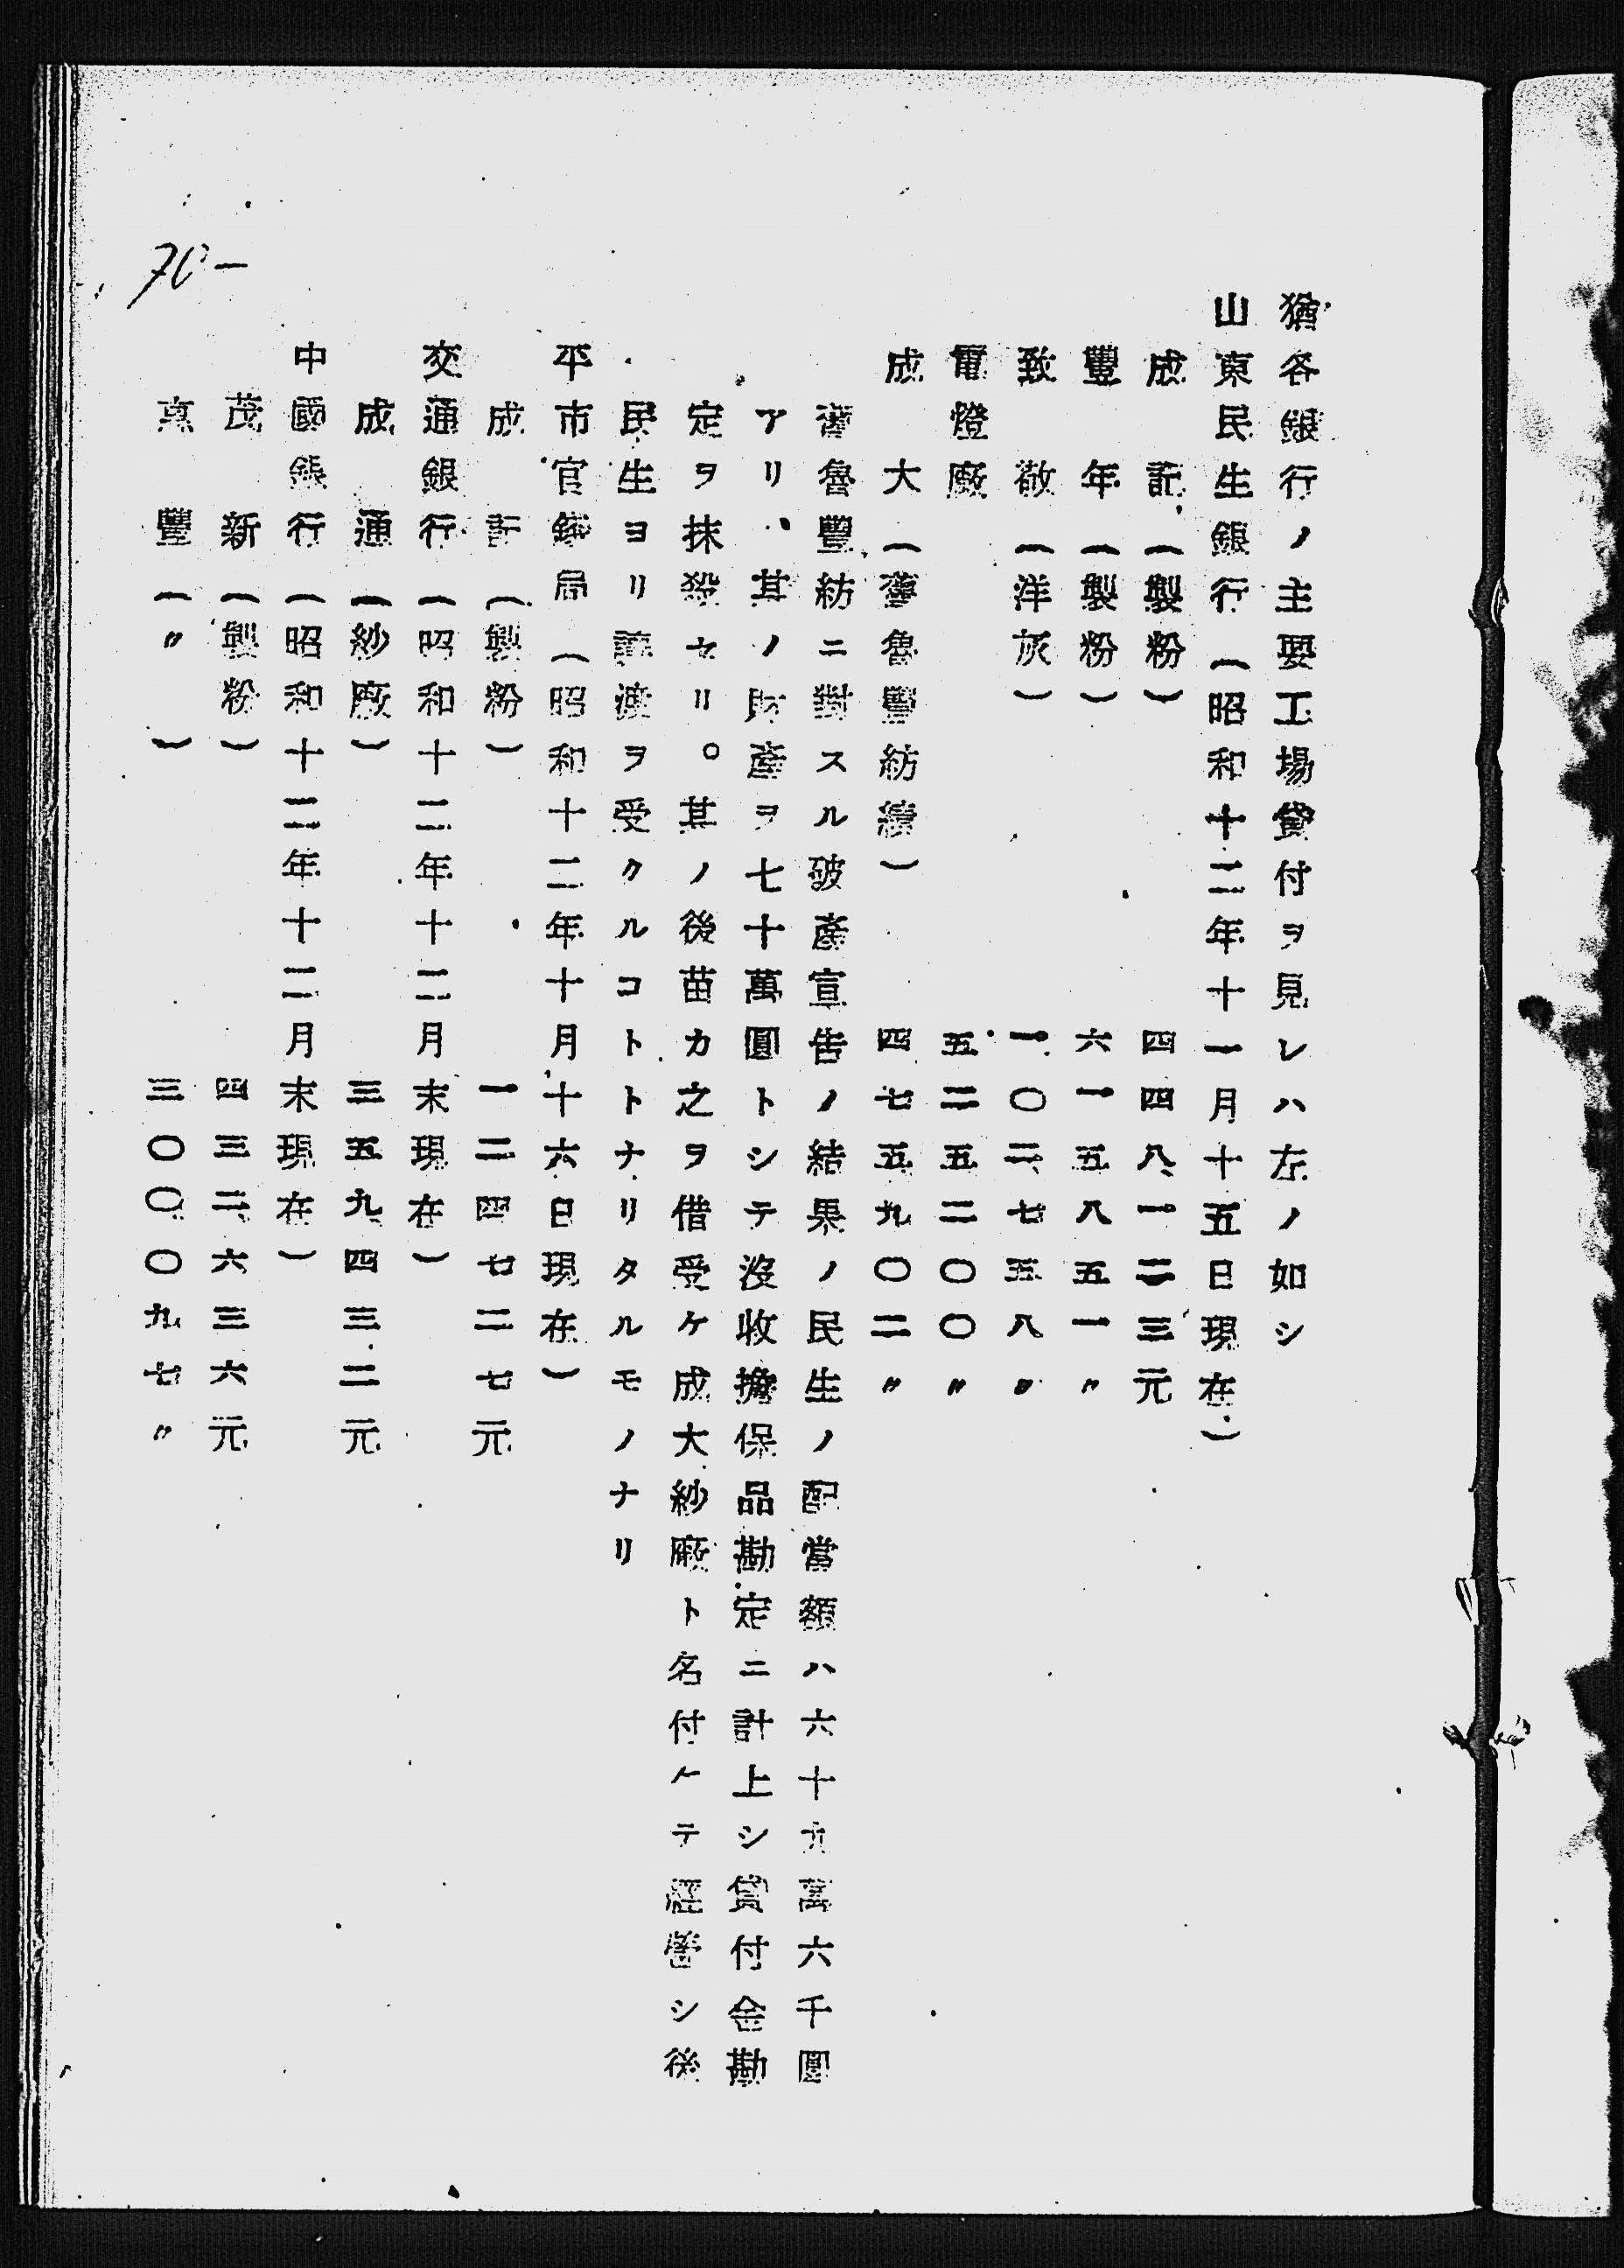 猶各銀行ノ主要工場貸付ヲ見レハ左ノ如シ
山東民生銀行(昭和十二年十一月十五日現在)
成記(製粉) 四四八一二三元
豐年(製粉) 六一五八五一〃
致敬(洋灰) 一〇二七五八〃
電燈廠 五二五二〇〇〃
成大(舊魯豐紡績) 四七五九〇二〃
舊魯豐紡ニ對スル破產宣告ノ結果ノ民生ノ配當額ハ六十九萬六千圓
アリ、其ノ財產ヲ七十萬圓トシテ沒收擔保品勘定ニ計上シ貸付金勘
定ヲ抹殺セリ。其ノ後苗カ之ヲ借受ケ成大紗廠ト名付ケテ經營シ後
民生ヨリ讓渡ヲ受クルコトトナリタルモノナリ
平市官錢局(昭和十二年十月十六日現在)
成記(製粉) 一二四七二七元
交通銀行(昭和十二年十二月末現在)
成通(紗廠) 三五九四三二元
中國銀行(昭和十二年十二月末現在)
茂新(製粉) 四三二六三六元
豐(〃) 三〇〇〇九七〃
70-